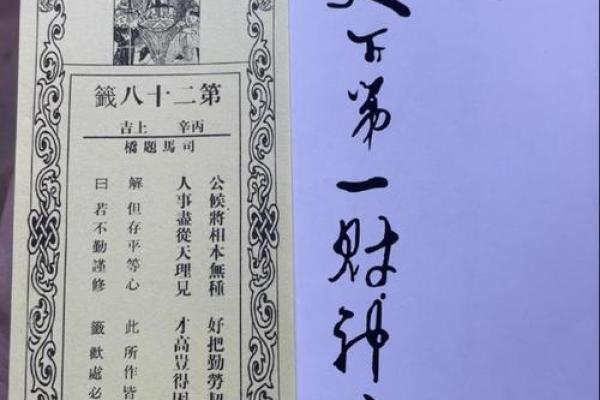 第二十八籤
丙辛 上吉
司馬題橋
公候將相本無種 好把勤勞
人事盡從天理見 才高豈得
解 但存平等心 此所作皆
曰 若不勤謹修 籤歡處必
下第一財神